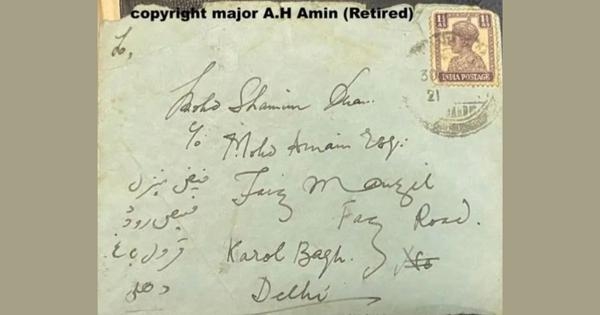 copyright major A.H Amin (Retired)
To,
1½ As
INDIA POSTAGE
30
21
Mohd Shamim Khan.
c/o Mohd Amain Esq:
فیض منزل
Faiz Manzil
فیض روڈ
Faiz Road.
قرول باغ
Karol Bagh.
دھلی
Delhi